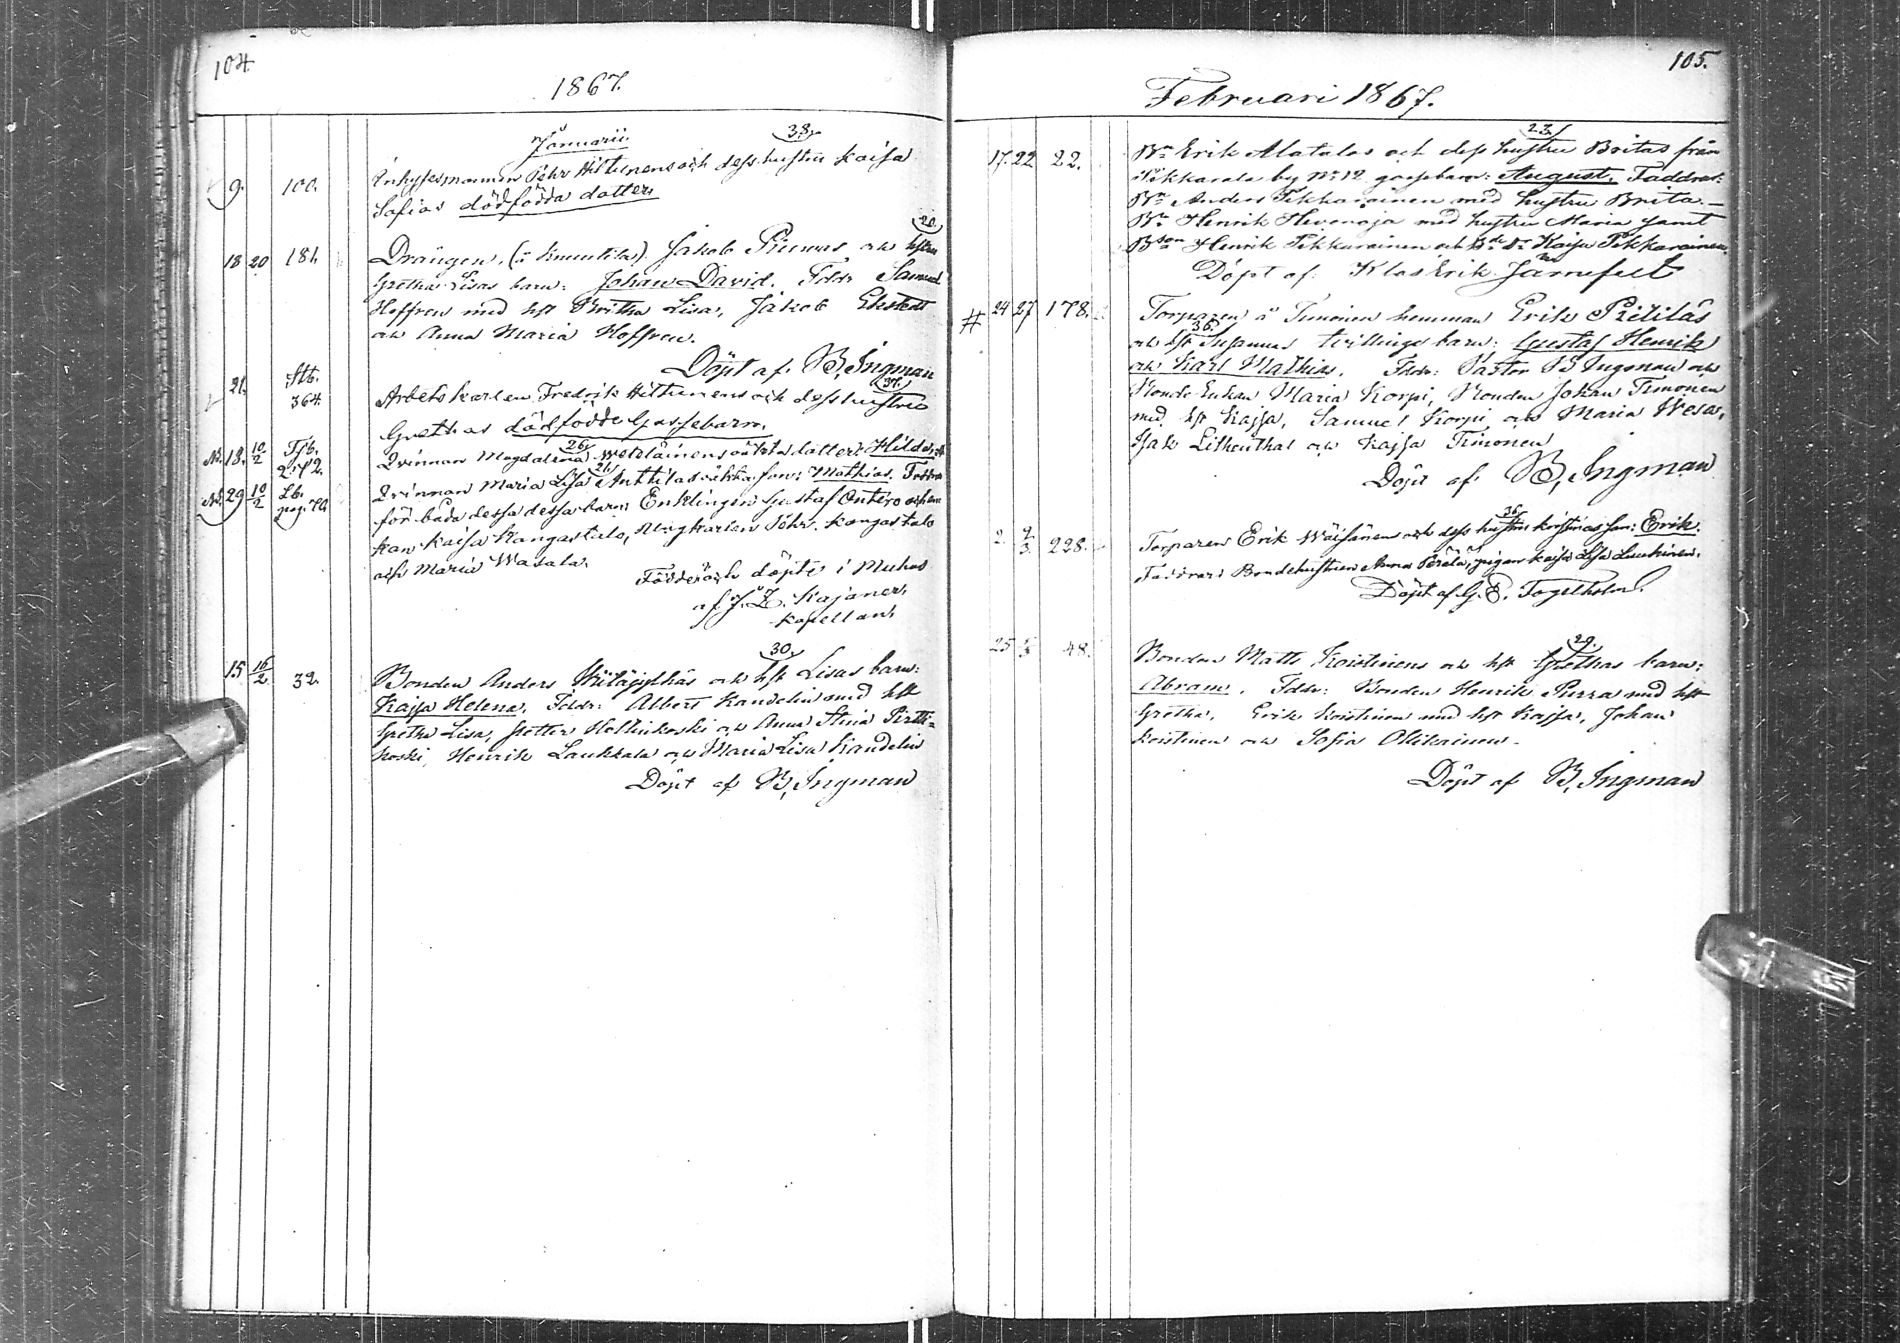 104.
1867.
Januarii.
38.
9. 100. Inhysesmannen Pehr Hiltunens och dess hustru Kaisa
Sofias dödfödda dotter.
20.
18 20 181. Drängen, (i Knuutila) Jakob Piuvas och hstru
Gretha Lisas barn: Johan David. Fddr Samuel
Hoffren med hst Britha Lisa, Jakob Ekstedt
och Anna Maria Hoffren.
Döpt af B, Ingman
37.
21. Stb. 364. Arbetskarlen Fredrik Hiltunens och dess hustru
Grethas dödfödde Gossebarn.
26.
No. 18. 10/2 Tjb. 272. Qvinnan Magdalena Weteläinens oäkta dotter: Hilda,
No. 29 10/2 Lb. pag. 70. Qvinnan Maria Lisa Anttilas oäkta son: Mathias. Faddrar
för båda dessa dessa barn: Enklingen Gustaf Ontero och en-
kan Kaisa Kangastalo, Ynglkarlen Pehr Kangastalo
och Maria Wasala.
Födde och döpte i Muhos
af J. Z. Kajaner,
kapellan.
30.
15 16/2 32. Bonden Anders Ylitägylhäs och hst Lisas barn:
Kajsa Helena. Fddr: Albert Kandelin med hst
Gretha Lisa, Petter Hollinkoski och Anna Stina Pirtti-
koski, Henrik Laukkala och Maria Lisa Kandelin
Döpt af B, Ingman
105.
Februari 1867.
23.
17. 22 22. Bn Erik Alatalos och dess hustru Britas från
Pikkarala by No 12 gossebarn: August, Faddrar:
Bn Anders Pikkarainen med hustru Brita.-
Bn Henrik Hevenoja med hustru Maria samt
Bson Henrik Pikkarainen och Bdr Kaisa Pikkarainen
Döpt af: Klas Erik Järnefelt
# 24 27 178. Torparen å Timonen hemman Erik Pietiläs
36.
och hst Susannas tvillinge barn: Gustaf Henrik
och Karl Mathias. Fddr: Pastor B Ingman och
Bonde Enkan Maria Korpi, Bonden Johan Timonen
med hst Kajsa, Samuel Korpi och Maria Wesa,
Isak Lithenthal och Kajsa Timonen
Döpt af B, Ingman
36.
2. 2/3 228. Torparen Erik Wäisänen och dess hustru Kristinas son: Erik.
Faddrar: Bondehustrun Anna Perälä, pigan Kaisa Lisa Laukinen.
Döpt af G. E. Fogelholm.
29.
25 48. Bonden Matts Koistinens och hst Grethas barn:
Abram. Fddr: Bonden Henrik Purra med hst
Gretha, Erik Koistinen med hst Kajsa, Johan
Koistinen och Sofia Okkainen.
Döpt af B, Ingman